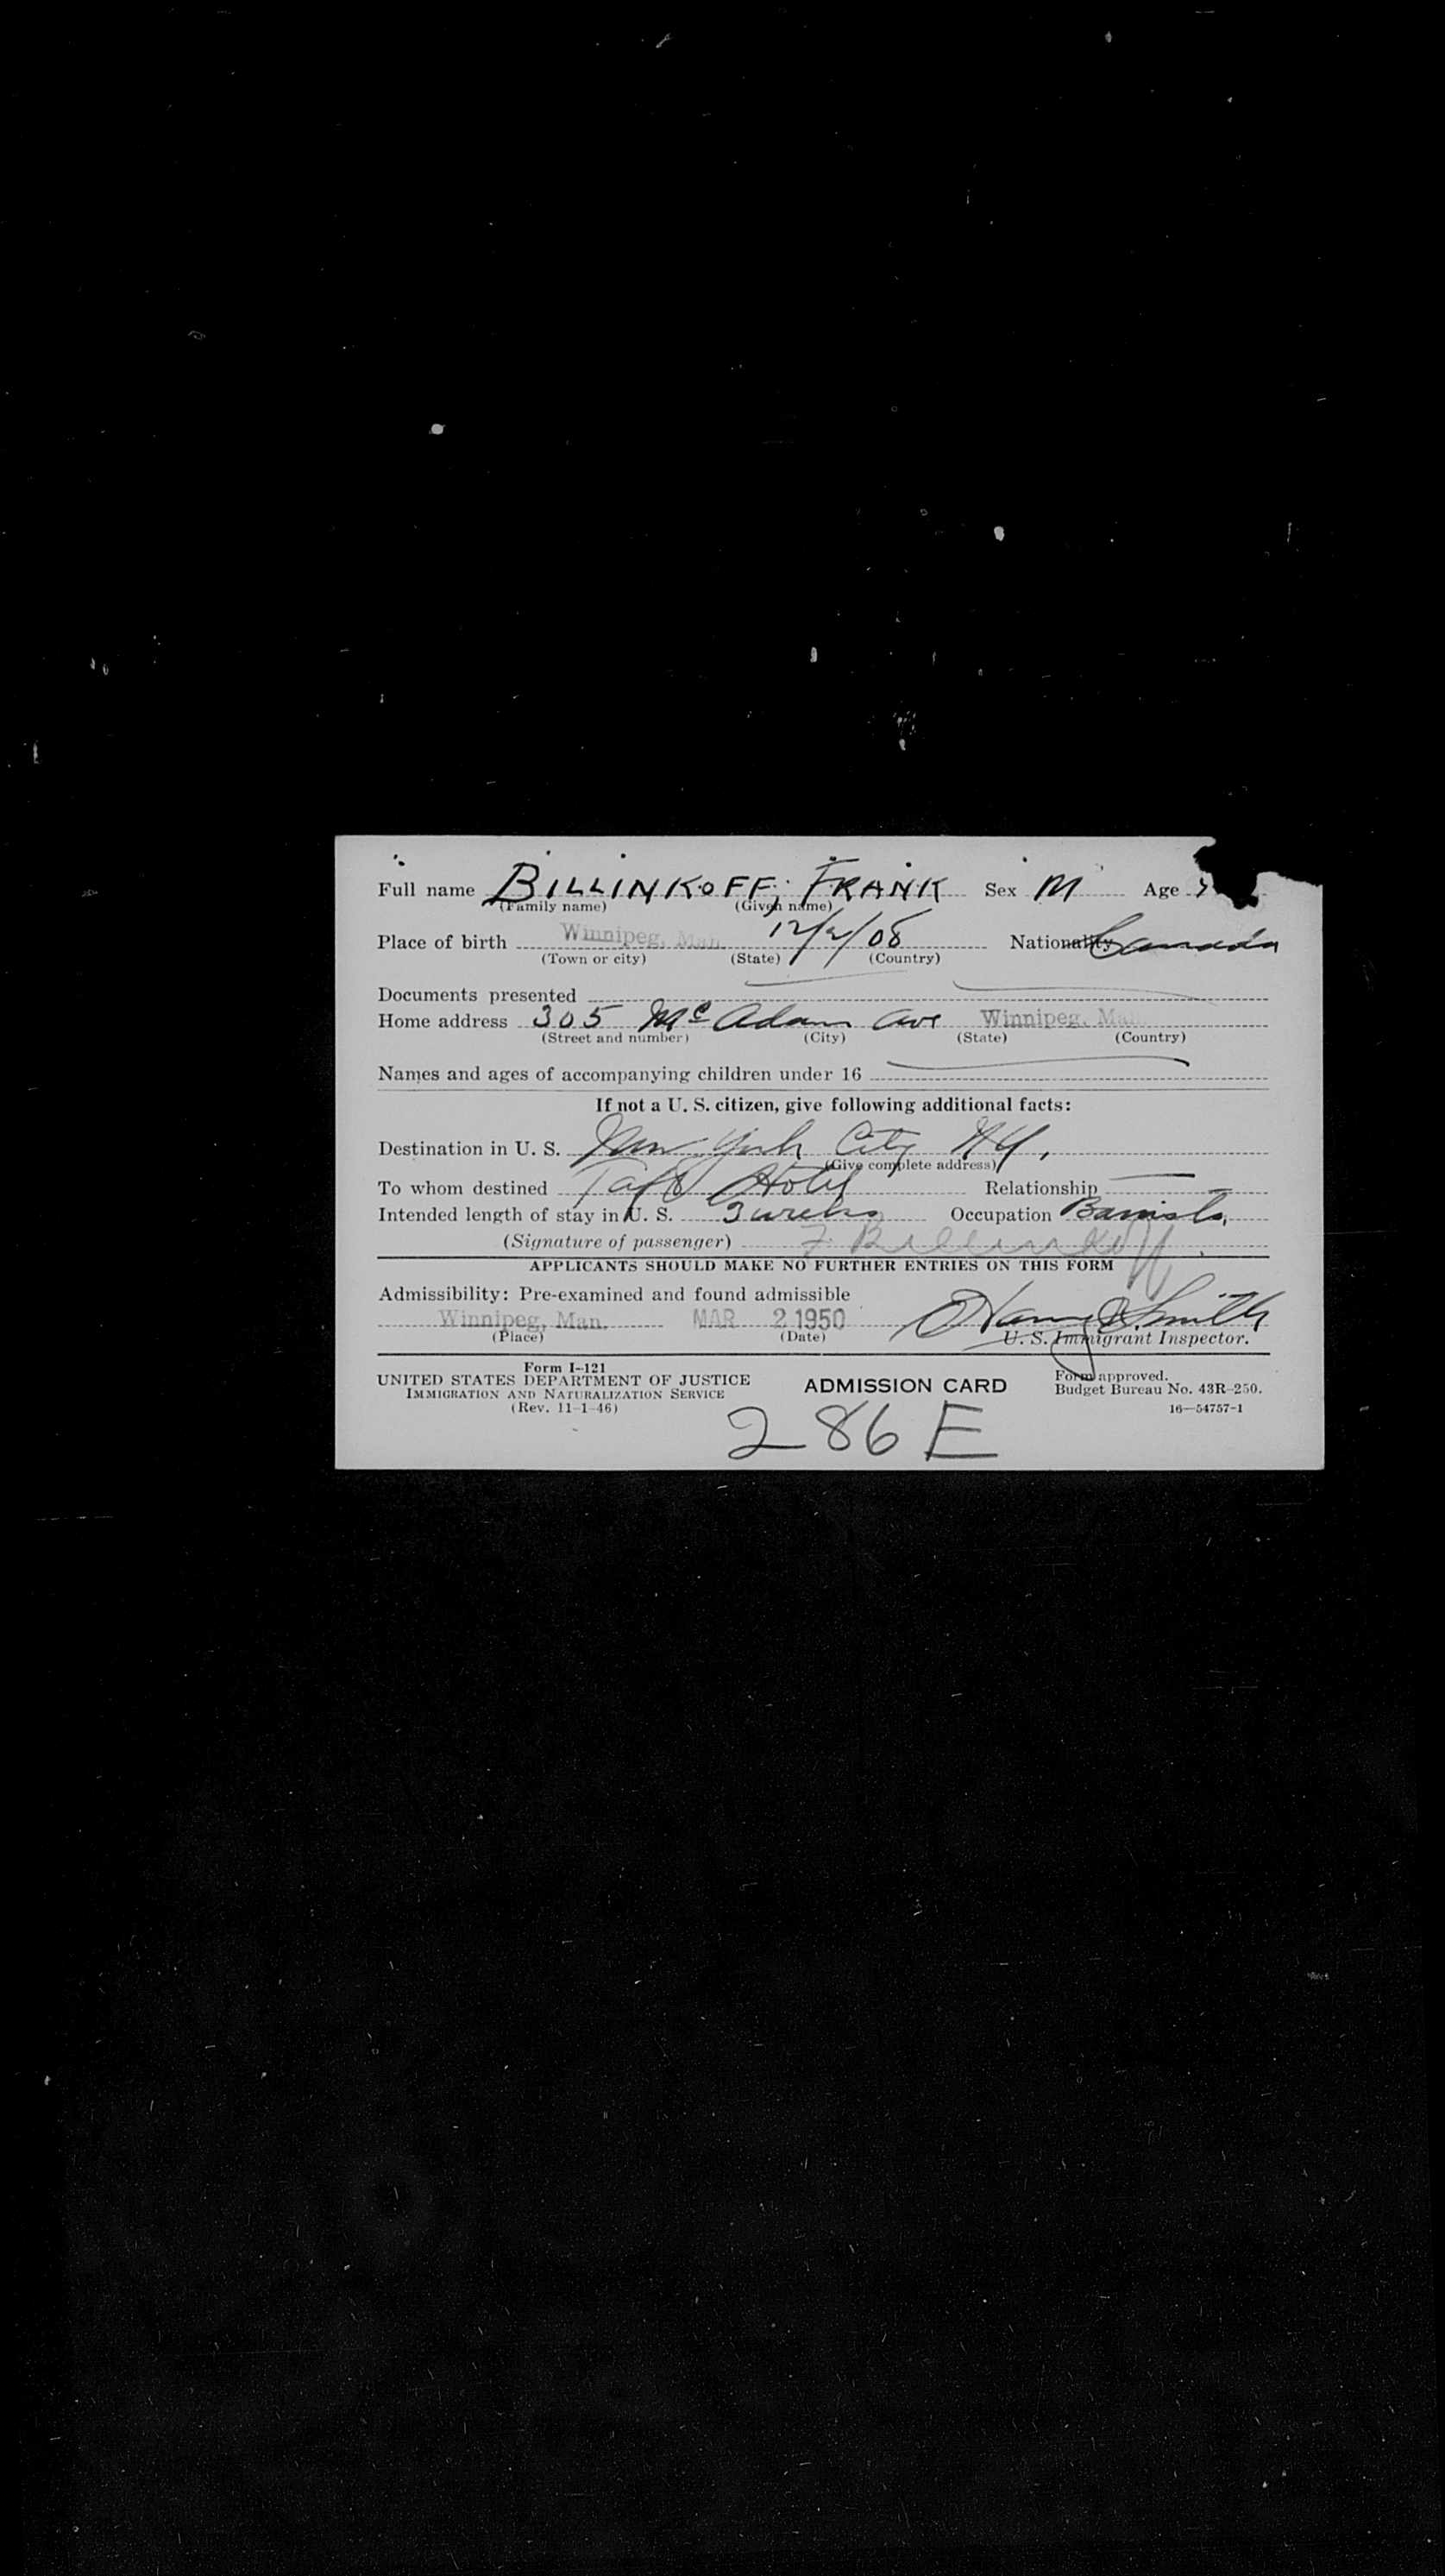 Full name BILLINKOFF, FRANK Sex M Age
(Family name) (Given name)
Place of birth Winnipeg, Man. 12/2/08 Nationality Canada
(Town or city) (State) (Country)
Documents presented
Home address 305 McAdam Ave Winnipeg, Man.
(Street and number) (City) (State) (Country)
Names and ages of accompanying children under 16
If not a U. S. citizen, give following additional facts:
Destination in U. S. New York City NY.
(Give complete address)
To whom destined Taft Hotel Relationship
Intended length of stay in U. S. 3 weeks Occupation Barrister
(Signature of passenger) F. Billinkoff
APPLICANTS SHOULD MAKE NO FURTHER ENTRIES ON THIS FORM
Admissibility: Pre-examined and found admissible
Winnipeg, Man. MAR 2 1950 Smith
(Place) (Date) U. S. Immigrant Inspector.
Form I-121
UNITED STATES DEPARTMENT OF JUSTICE
IMMIGRATION AND NATURALIZATION SERVICE
(Rev. 11-1-46)
ADMISSION CARD
Form approved.
Budget Bureau No. 43R-250.
16—54757-1
286 E